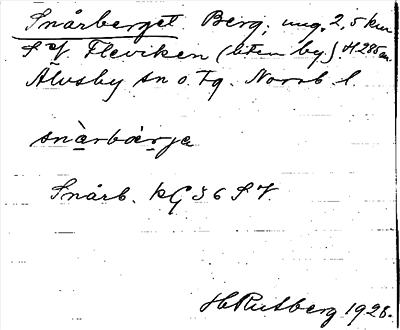 Snårberget Berg, ung. 2,5 km
S V Fleviken (liten by). H. 285 m.
Älvsby sn o. Tg. Norrb. l.
snàrbàrja
Snårb. kG 36 S V.
H Rutberg 1928.